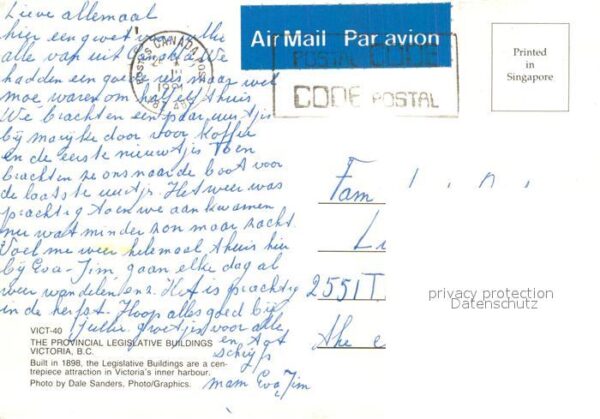 Lieve allemaal
hier een groetje van
alle van uit Canada We
hadden een goede reis maar wel
moe waren om half elf thuis
We brachten een paar uurtjes
bij marijke door voor koffie
en de eerste nieuwtjes Toen
brachten ze ons naar de boot voor
de laatste uurtjs. Het weer was
prachtig toen we aan kwamen
nu wat minder zon maar zacht
Voel me weer helemaal thuis hier
bij Eva-Jim, gaan elke dag al
weer wandelen enz. Het is prachtig
in de herfst. Hoop alles goed bij
Jullie. groetjes voor alle
en tot
schrijfs
mam Eva, Jim
VICT-40
THE PROVINCIAL LEGISLATIVE BUILDINGS
VICTORIA, B.C.
Built in 1898, the Legislative Buildings are a cen-
trepiece attraction in Victoria's inner harbour.
Photo by Dale Sanders, Photo/Graphics.
POSTES CANADA POST
Air Mail Par avion
POSTAL CODE
CODE POSTAL
Printed
in
Singapore
Fam
2551T
privacy protection
Datenschutz